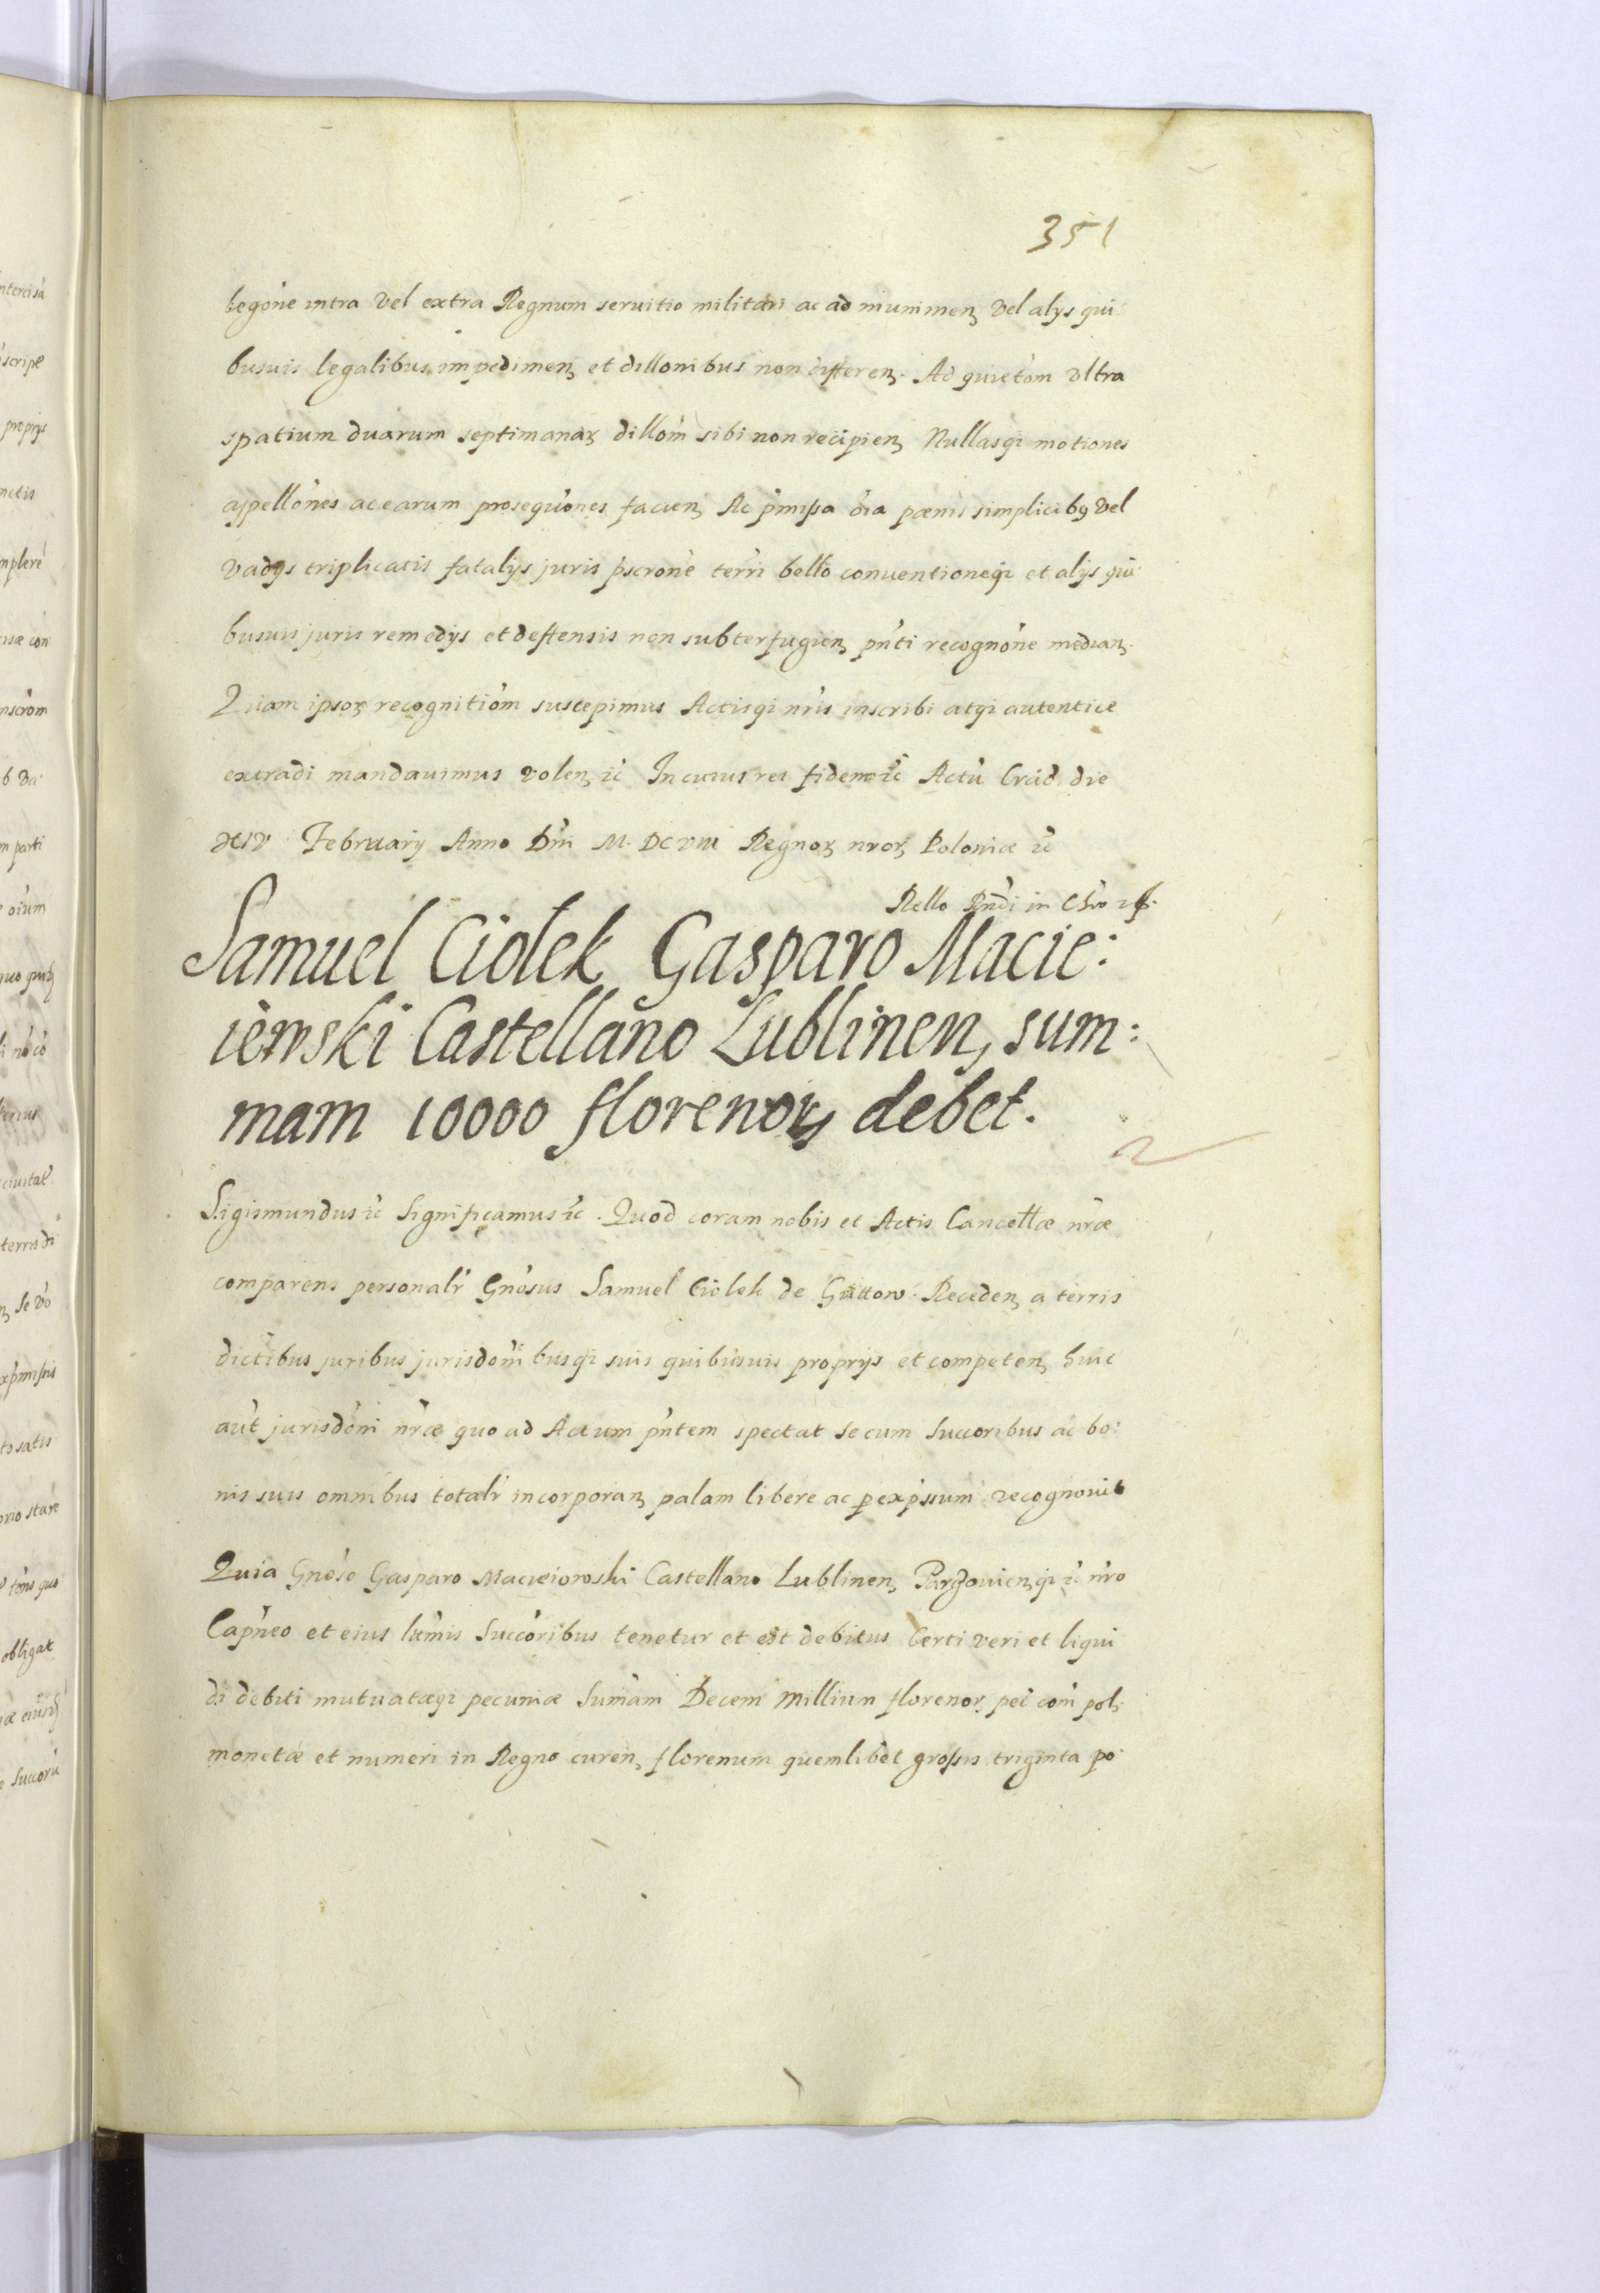 351
legõne intra vel extra Regnum seruitio militari ac ad munimenʒ vel alys qui:
busuis legalibus impedimenʒ et dillonibus non differenʒ. Ad quietõm vltra
spatium duarum septimanaʒ dillõm sibi non recipienʒ Nullasqʒ motiones
appellões ac earum prosequões facienʒ Ac p̃missa õia pœnis simplicibꝯ vel
vadys triplicatis fatalys juris p̃scrõne terrī bello conuentioneqʒ et alys qui:
busuis juris remedys et deffensis non subterfugienʒ pñti recognõne medianʒ.
Quam ipsoʒ recognitiõm suscepimus Actisqʒ nr̃is inscribi atqʒ autentice
extradi mandauimus volenʒ ĩc In cuius rei fidem ĩc Actũ Crac̃ die
xiv Februarij Anno Dñi M. DCVIII Regnoʒ nroʒ Poloniæ ĩc
Rello Rñdi in Chro
Samuel Ciołek Gasparo Macie:
iewski Castellano Lublinen, sum:
mam 10000 florenoʒ debet.
Sigismundus ĩc Significamus ĩc. Quod coram nobis et Actis Cancellæ nr̃æ
comparens personalr̃ Gñosus Samuel Ciołek de Recedenʒ a terris
districtibus juribus jurisdõnibusqʒ suis quibusuis proprijs et competenʒ huic
aũt jurisdõni nr̃æ quo ad Actum pñtem spectat se cum Succoribus ac bo:
nis suis omnibus totalr̃ incorporanʒ palam libere ac p exp̃ssum recognouit
Quia Gñoso Gasparo Macieiowski Castellano Lublinenʒ ĩc nr̃o
Capñeo et eius ltĩmis Succõribus tenetur et est debitus Certi veri et liqui
di debiti mutuatæqʒ pecuniæ Sum̃am Decem Millium florenoʒ pec̃ com̃ polʒ
monetæ et numeri in Regno curenʒ florenum quemlibet grossis triginta po: